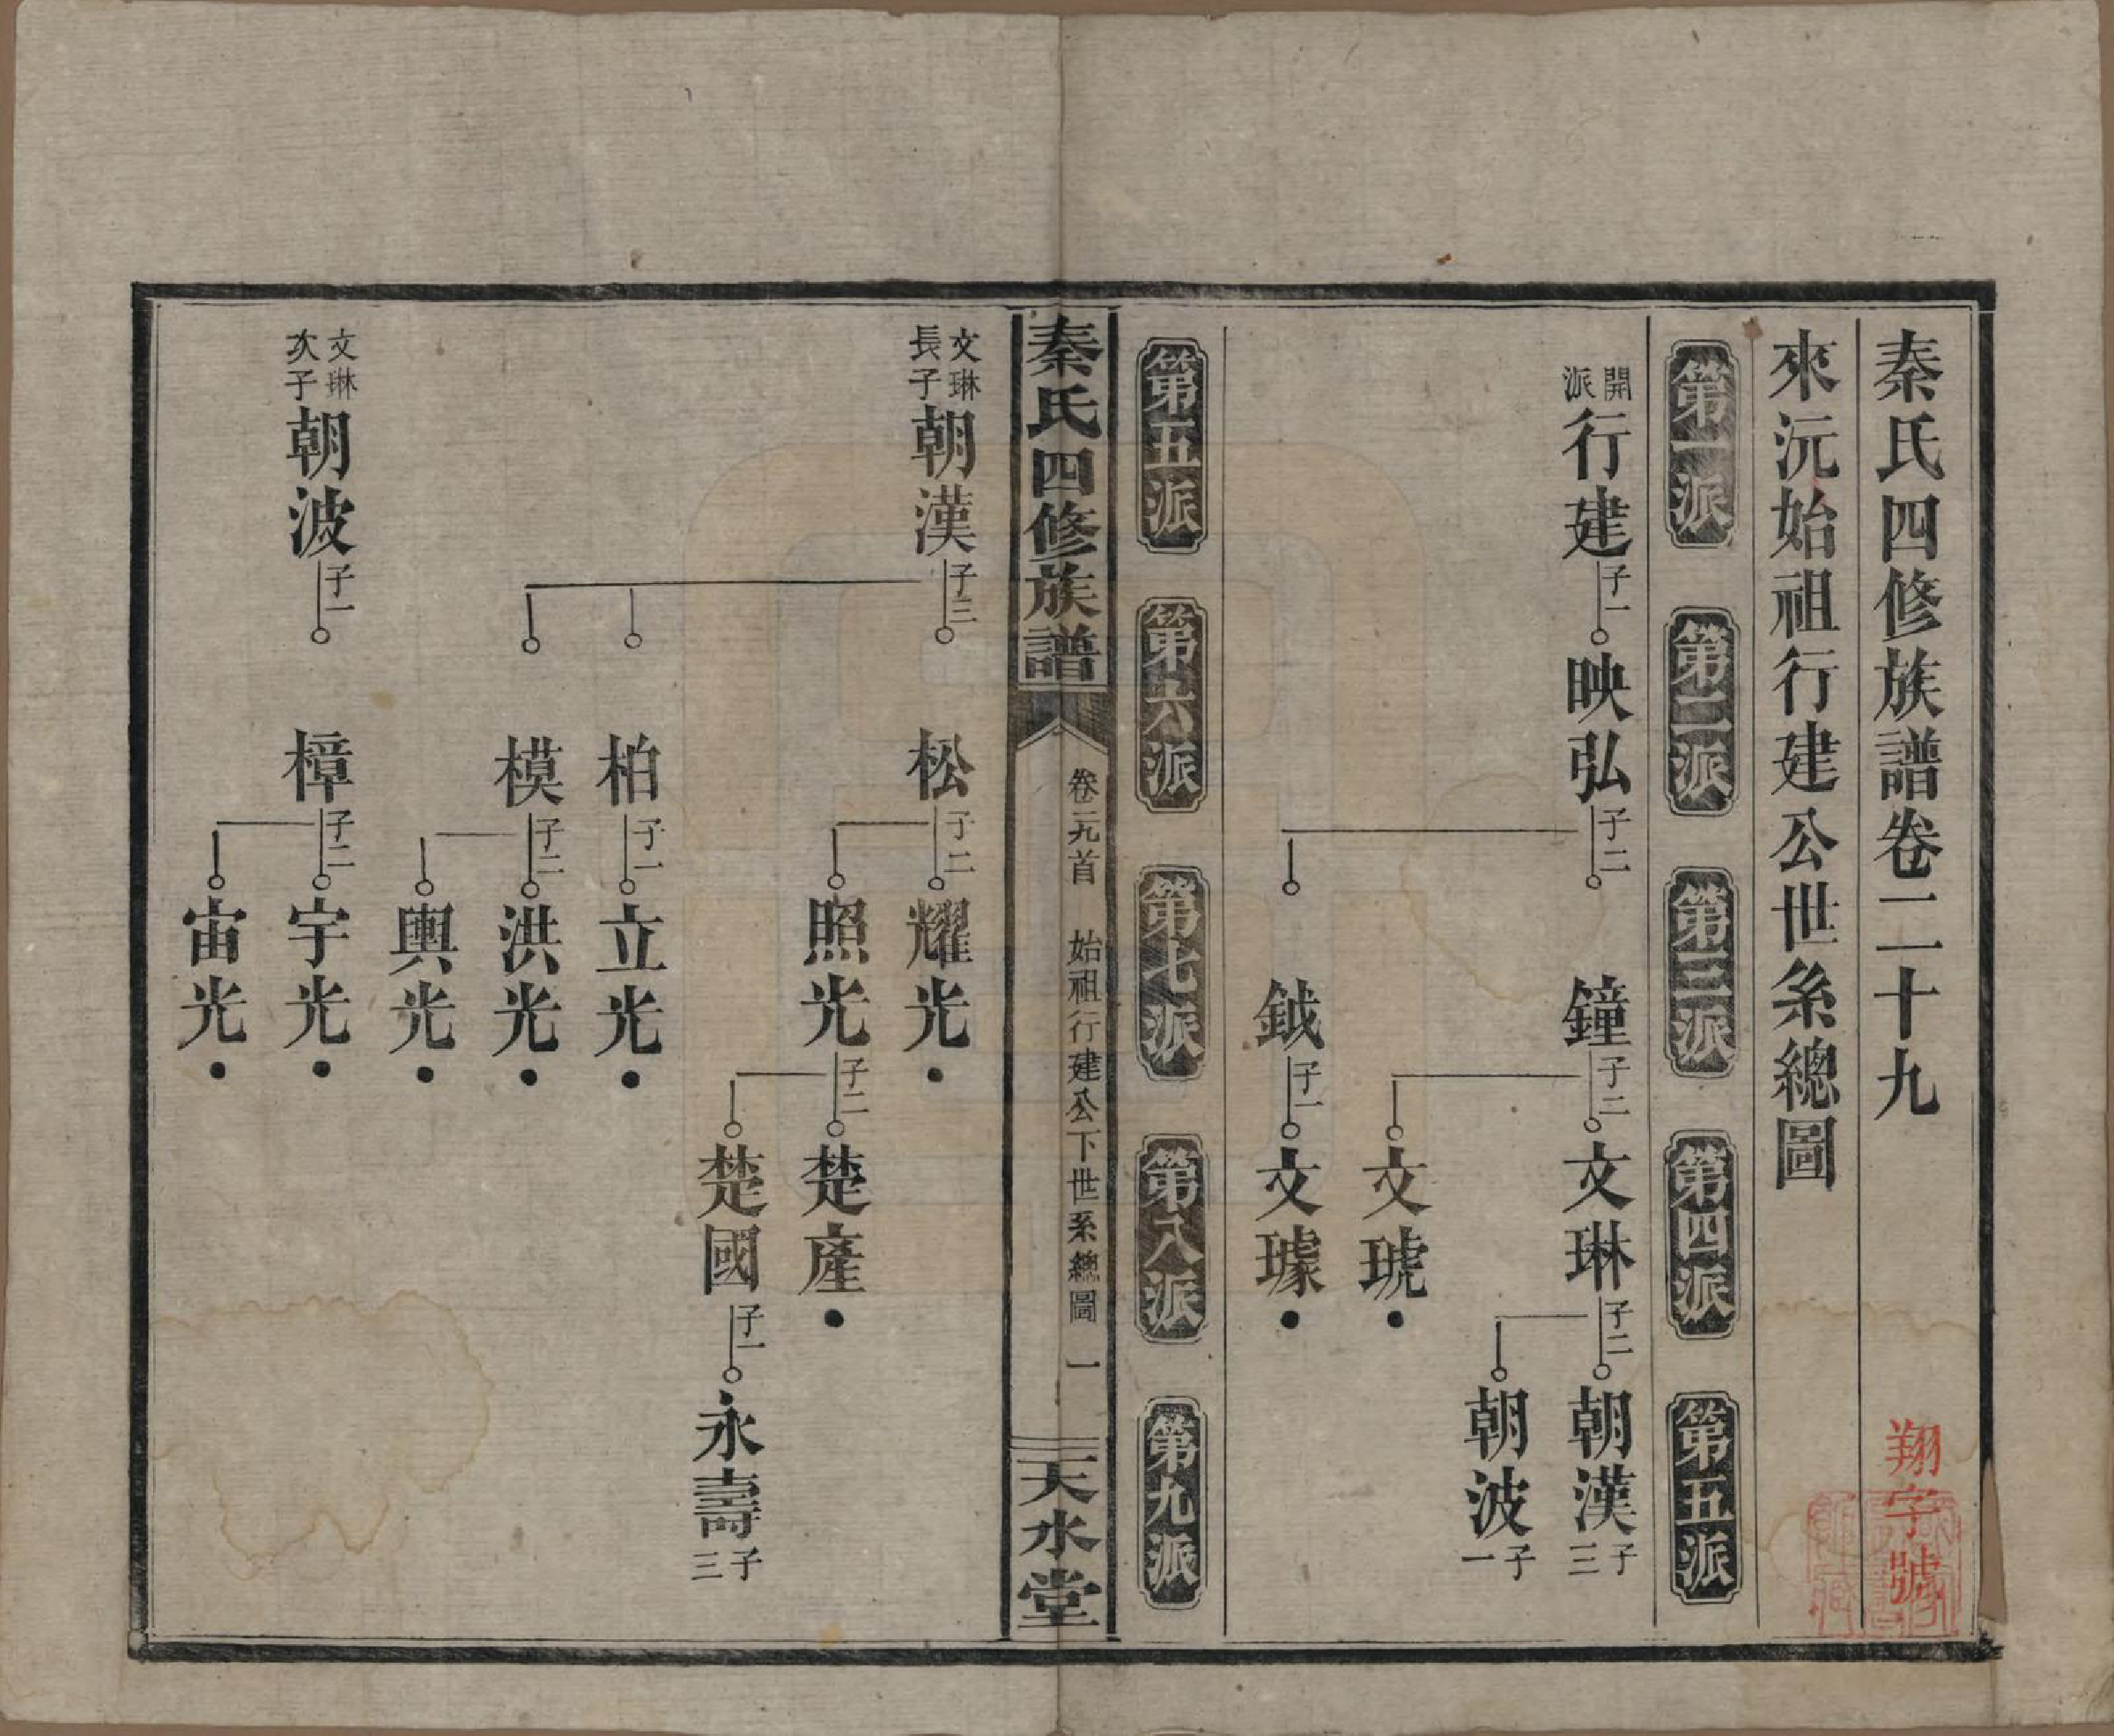 秦氏四修族譜卷二十九
翔字號
來沅始祖行建公世系總圖
第一派
第二派
第三派
第四派
第五派
開派
行建
子一
映弘
子二
鐘
子二
文琳
子二
朝漢
子三
朝波
子一
文琥
鉞
子一
文璩
第五派
第六派
第七派
第八派
第九派
秦氏四修族譜
卷二九首
始祖行建公下世系總圖
一
天水堂
文琳長子
朝漢
子三
松
子二
耀光
照光
子二
楚產
楚國
子一
永壽
子三
柏
子一
立光
模
子二
洪光
輿光
文琳次子
朝波
子一
樟
子二
宇光
宙光